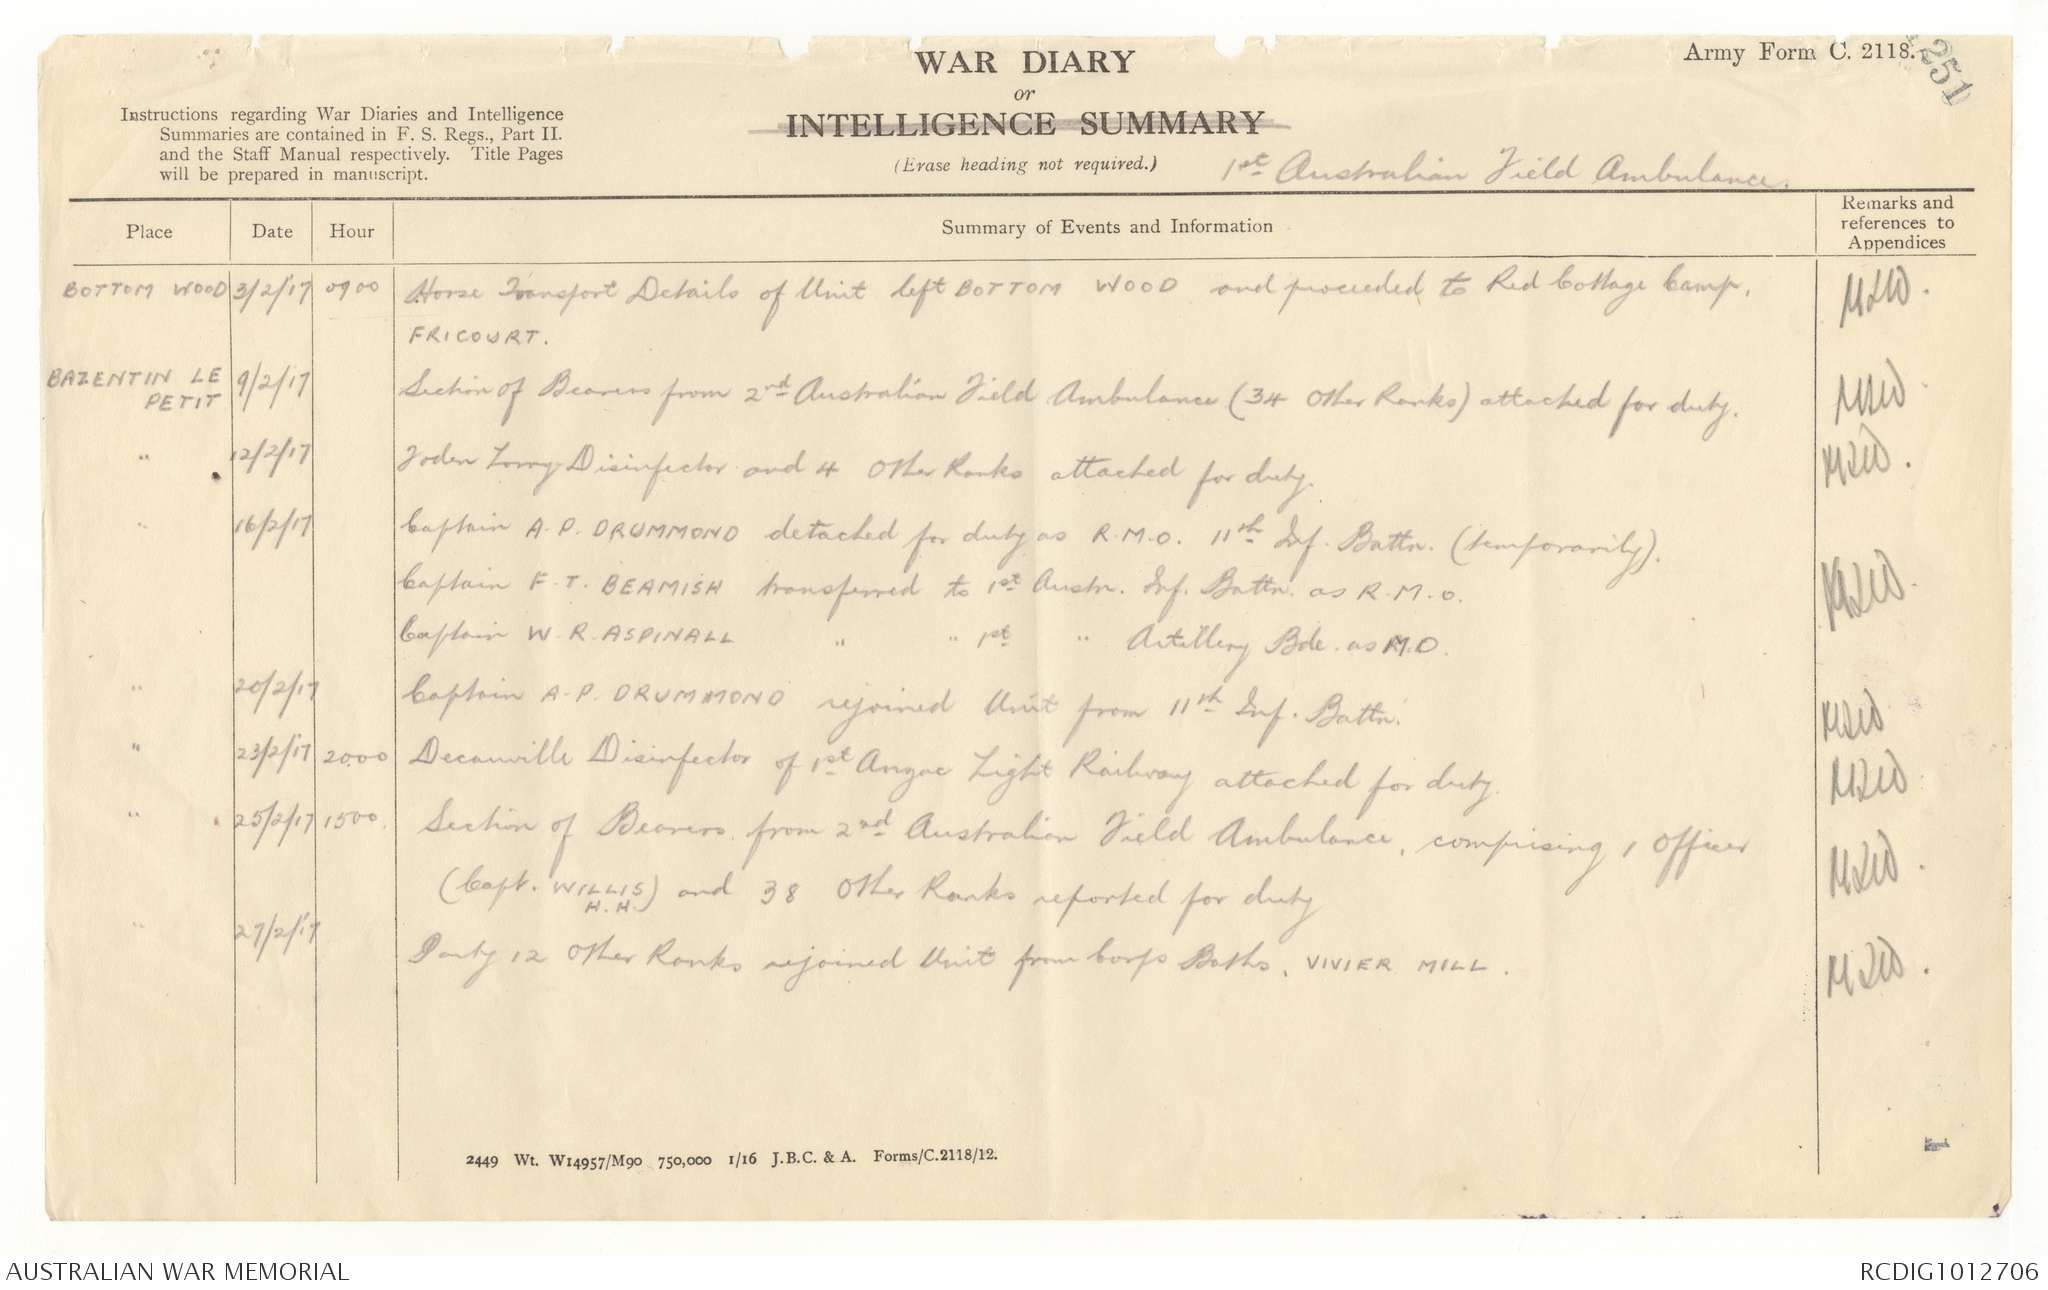 WAR DIARY
or
INTELLIGENCE SUMMARY
(Erase heading not required.)
Army Form C. 2118.
251
Instructions regarding War Diaries and Intelligence
Summaries are contained in F. S. Regs., Part II.
and the Staff Manual respectively. Title Pages
will be prepared in manuscript.
1st Australian Field Ambulance.
Place Date Hour Summary of Events and Information Remarks and
references to
Appendices
BOTTOM WOOD 3/2/17 0900 Horse Transport Details of Unit left BOTTOM WOOD and proceeded to Red Cottage Camp,
FRICOURT.
BAZENTIN LE 9/2/17 Section of Bearers from 2nd Australian Field Ambulance (34 Other Ranks) attached for duty.
PETIT
" 12/2/17 Foden Lorry Disinfector and 4 Other Ranks attached for duty.
" 16/2/17 Captain A.P. DRUMMOND detached for duty as R.M.O. 11th Inf. Battn. (temporarily).
Captain F.T. BEAMISH transferred to 1st Austn. Inf. Battn. as R.M.O.
Captain W.R. ASPINALL " " 1st " Artillery Bde. as M.O.
" 20/2/17 Captain A.P. DRUMMOND rejoined Unit from 11th Inf. Battn.
" 23/2/17 2000 Decauville Disinfector of 1st Anzac Light Railway attached for duty.
" 25/2/17 1500. Section of Bearers from 2nd Australian Field Ambulance, comprising 1 Officer
(Capt. WILLIS) and 38 Other Ranks reported for duty
H.H.
" 27/2/17 Party 12 Other Ranks rejoined Unit from Corps Baths, VIVIER MILL.
2449 Wt. W14957/M90 750,000 1/16 J.B.C. & A. Forms/C.2118/12.
1
AUSTRALIAN WAR MEMORIAL RCDIG1012706